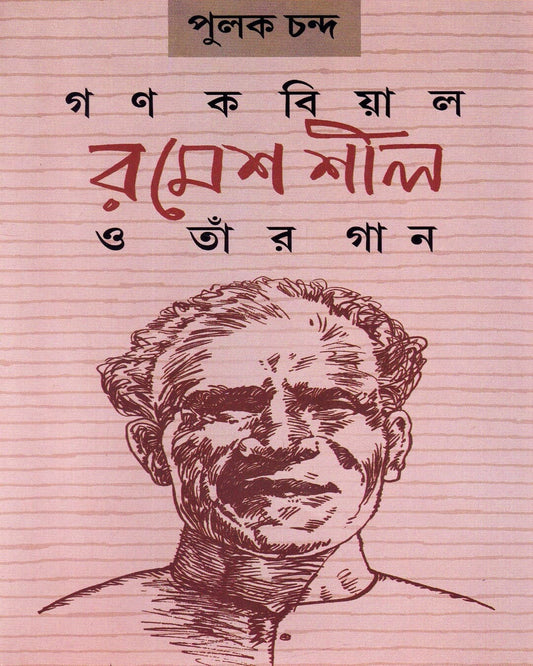 পুলক চন্দ
গণ কবিয়াল
রমেশ শীল
ও তাঁর গান